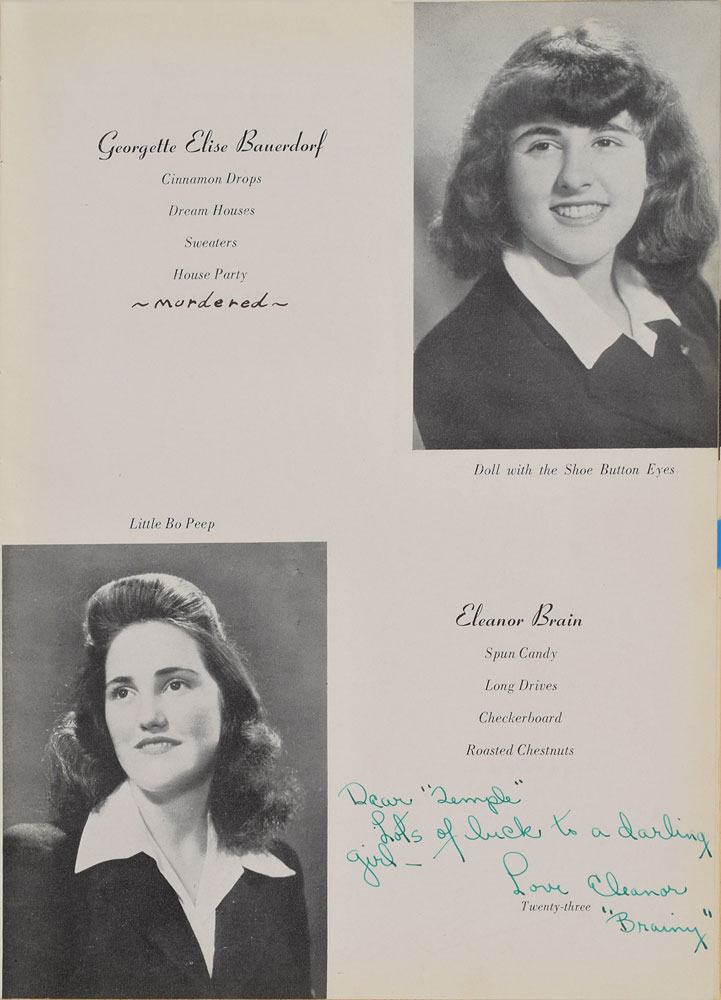 Georgette Elise Bauerdorf
Cinnamon Drops
Dream Houses
Sweaters
House Party
~ murdered ~
Doll with the Shoe Button Eyes
Little Bo Peep
Eleanor Brain
Spun Candy
Long Drives
Checkerboard
Roasted Chestnuts
Dear "Temple"
Lots of luck to a darling
girl —
Love Eleanor
Twenty-three
"Brainy"